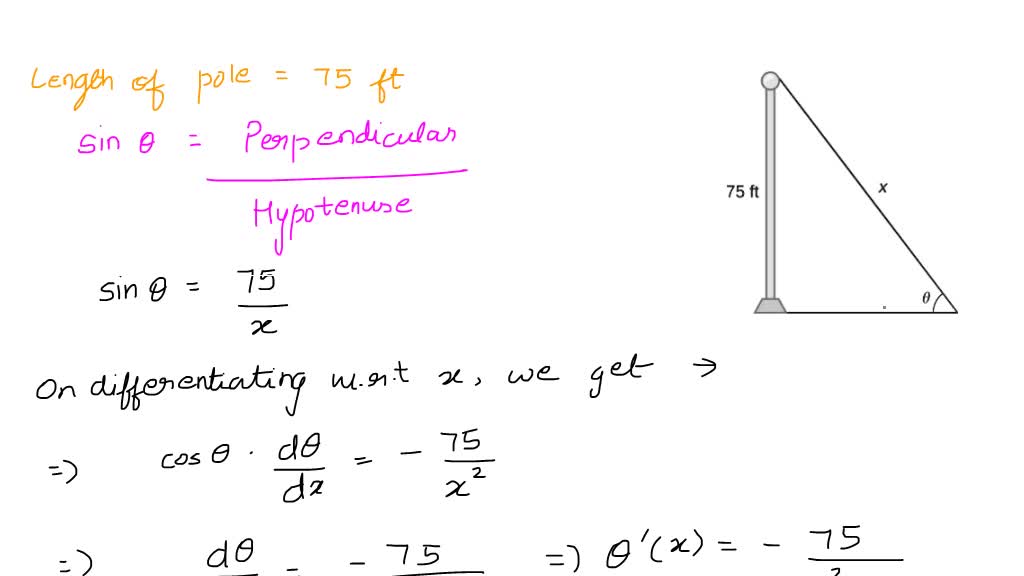 Length of pole = 75 ft
sin θ = Perpendicular
Hypotenuse
sin θ = 75
x
75 ft
x
θ
On differentiating w.r.t x, we get →
=> cos θ · dθ/dx = - 75/x²
=> dθ = - 75 => θ'(x) = - 75